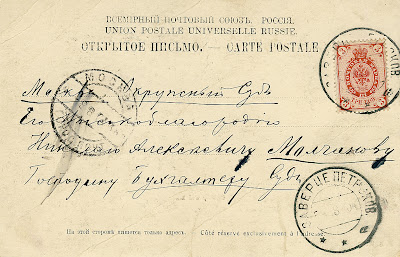 ВСЕМІРНЫЙ ПОЧТОВЫЙ СОЮЗЪ. РОССІЯ.
UNION POSTALE UNIVERSELLE RUSSIE.
ОТКРЫТОЕ ПИСЬМО. — CARTE POSTALE
МОСКВА
Москва Окружный Судъ
Его Высокоблагородію
Николаю Алексѣевичу Молчанову
Господину Бухгалтеру Суда
ЗАВЕРЦЕ ПЕТРОКОВ
На этой сторонѣ пишется только адресъ.
Côté réservé exclusivement à l'adresse.